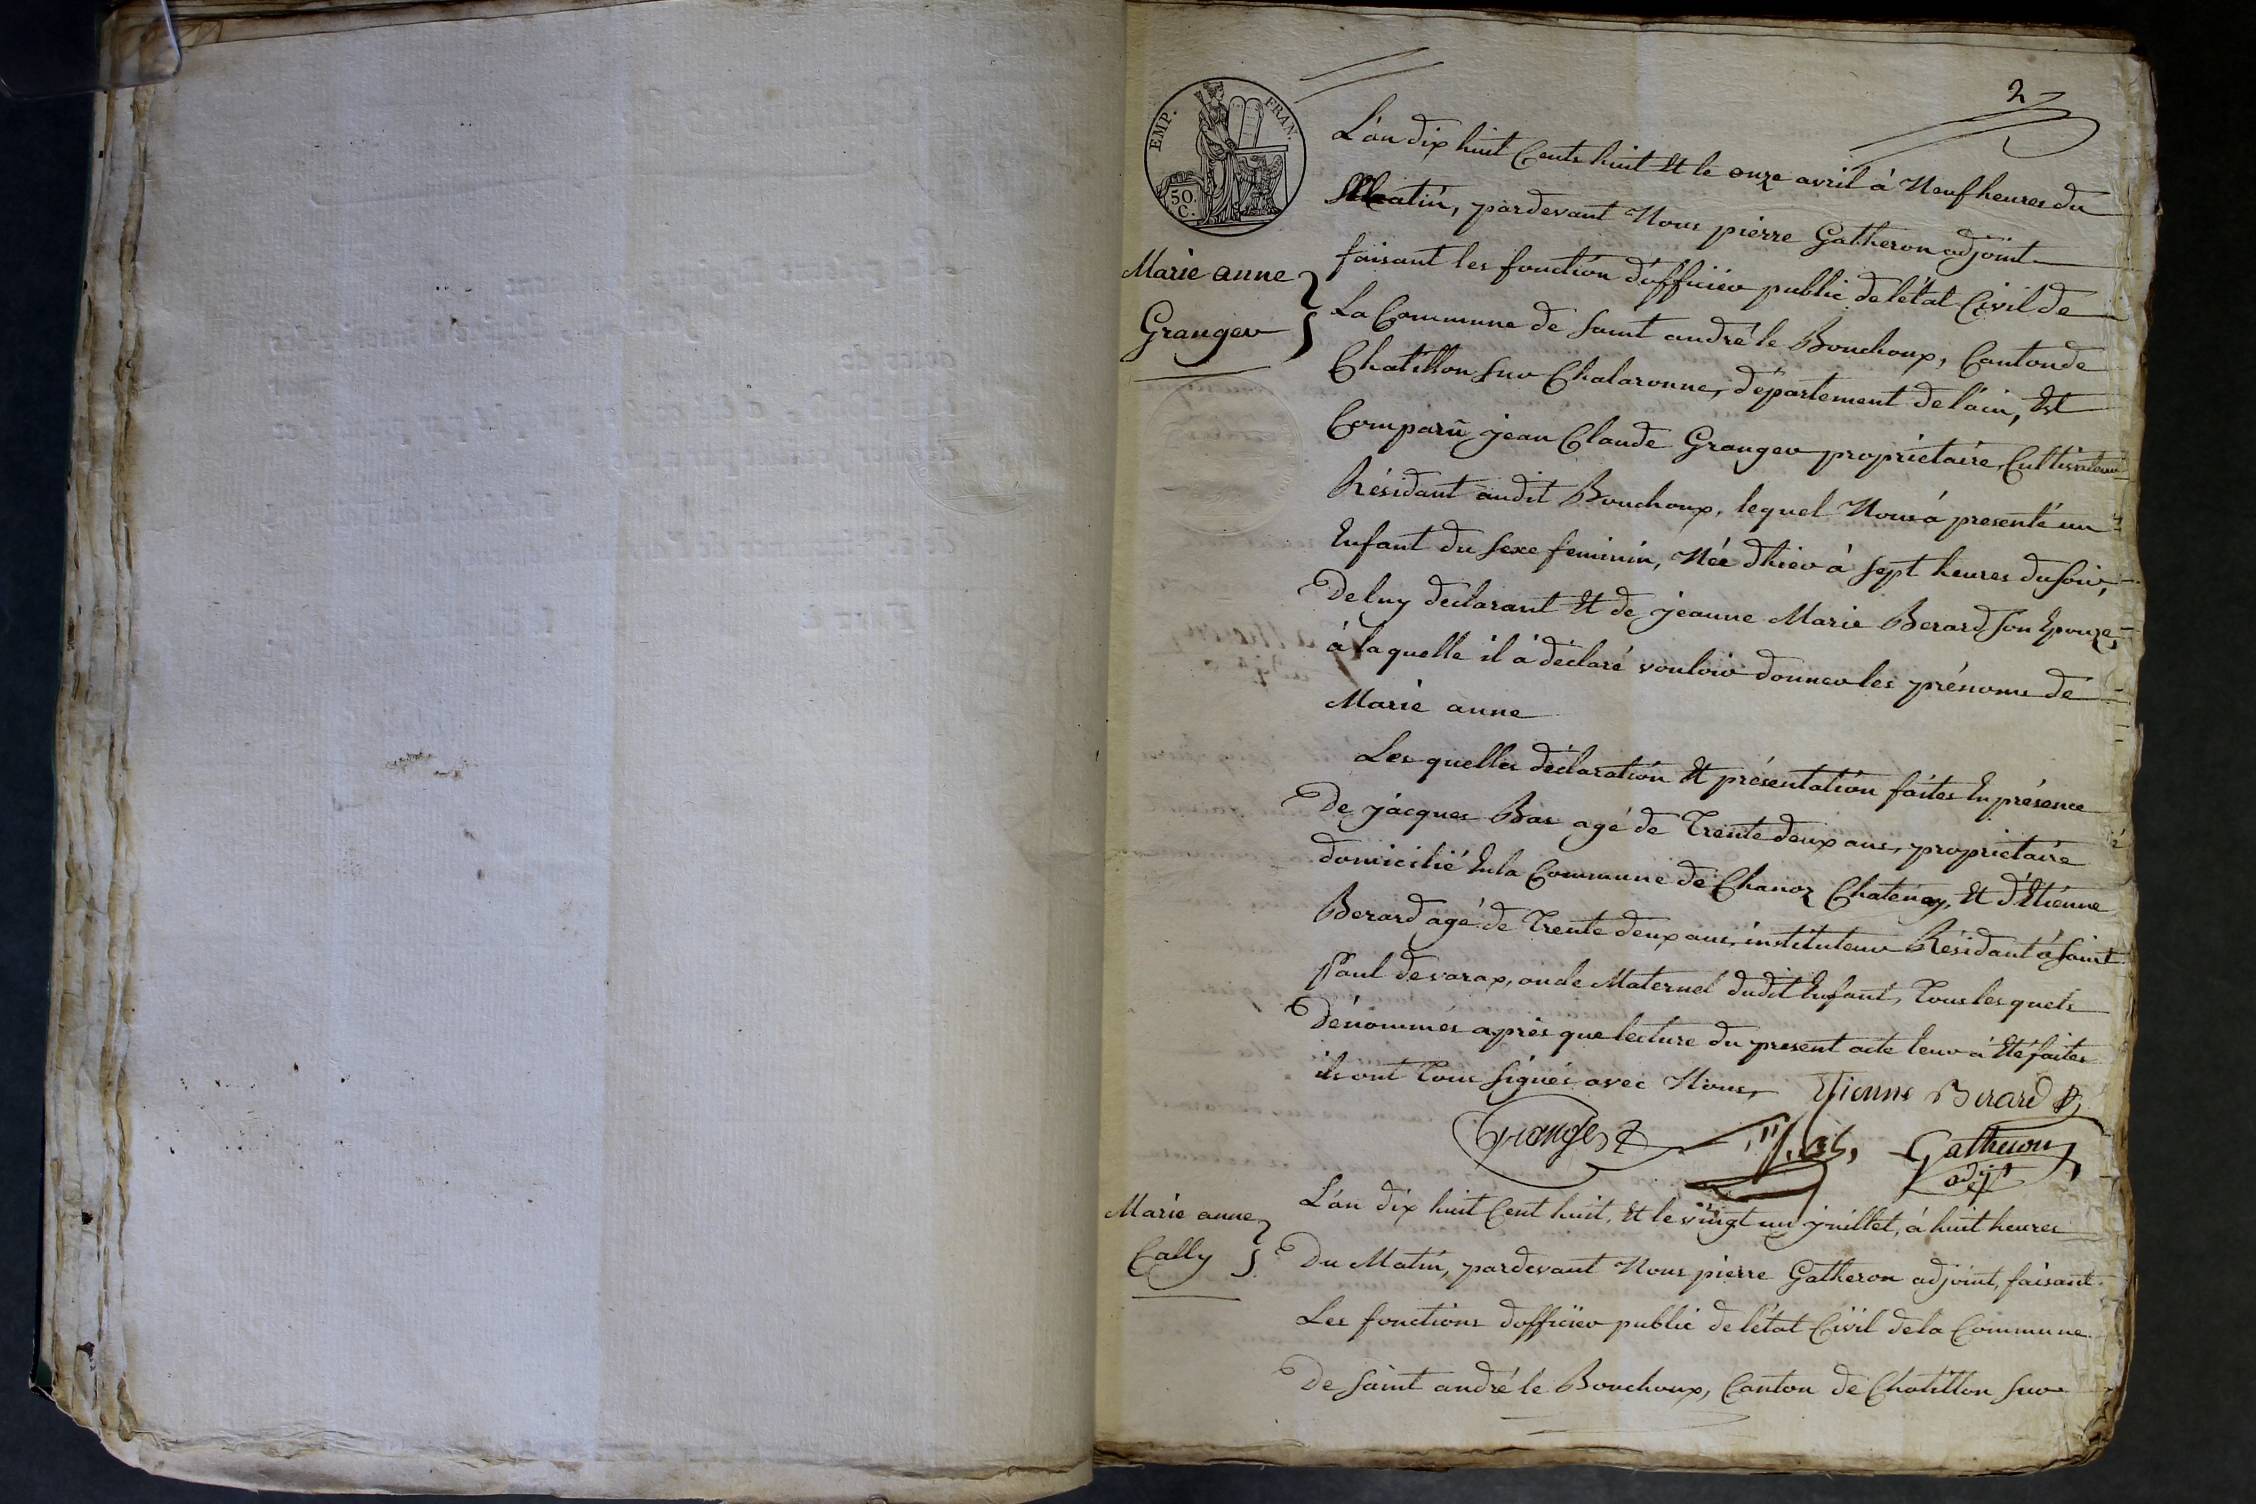 2
EMP. FRAN.
50.
C.
Marie anne
Granger
L'an dix huit Cents huit Et le onze avril à Neuf heures du
Matin, pardevant Nous pierre Gatheron adjoint
faisant les fonction d'officier public de l'état Civil de
La Commune de saint andré le Bouchoux, Canton de
Chatillon sur Chalaronne, département de l'ain, Est
Comparû jean Claude Granger propriétaire, Cultivateur
Résidant audit Bouchoux, lequel Nous à presenté un
Enfant du sexe feminin, Née d'hier à sept heures du soir,
De luy déclarant Et de jeanne Marie Berard son Epouze,
à laquelle il à déclaré vouloir donner les prénoms de
Marie anne
Les quelles déclaration Et présentation faites En présence
De jacques Bas agé de Trente deux ans, propriétaire
domicilié En la Commune de Chanoz Chatenay, Et d'Etienne
Berard agé de Trente deux ans, instituteur Résidant à saint
Paul de varax, oncle Maternel dudit Enfant, Tous les quels
Dénommés après que lecture du present acte leur à Eté faites
ils ont Tous signés avec Nous, Etienne Berard
Granger Gatheron
adjt
Marie anne
Cally
L'an dix huit Cent huit, Et le vingt un juillet, à huit heures
Du Matin, pardevant Nous pierre Gatheron adjoint, faisant
Les fonctions d'officier public de l'état Civil de la Commune
De saint andré le Bouchoux, Canton de Chatillon sur